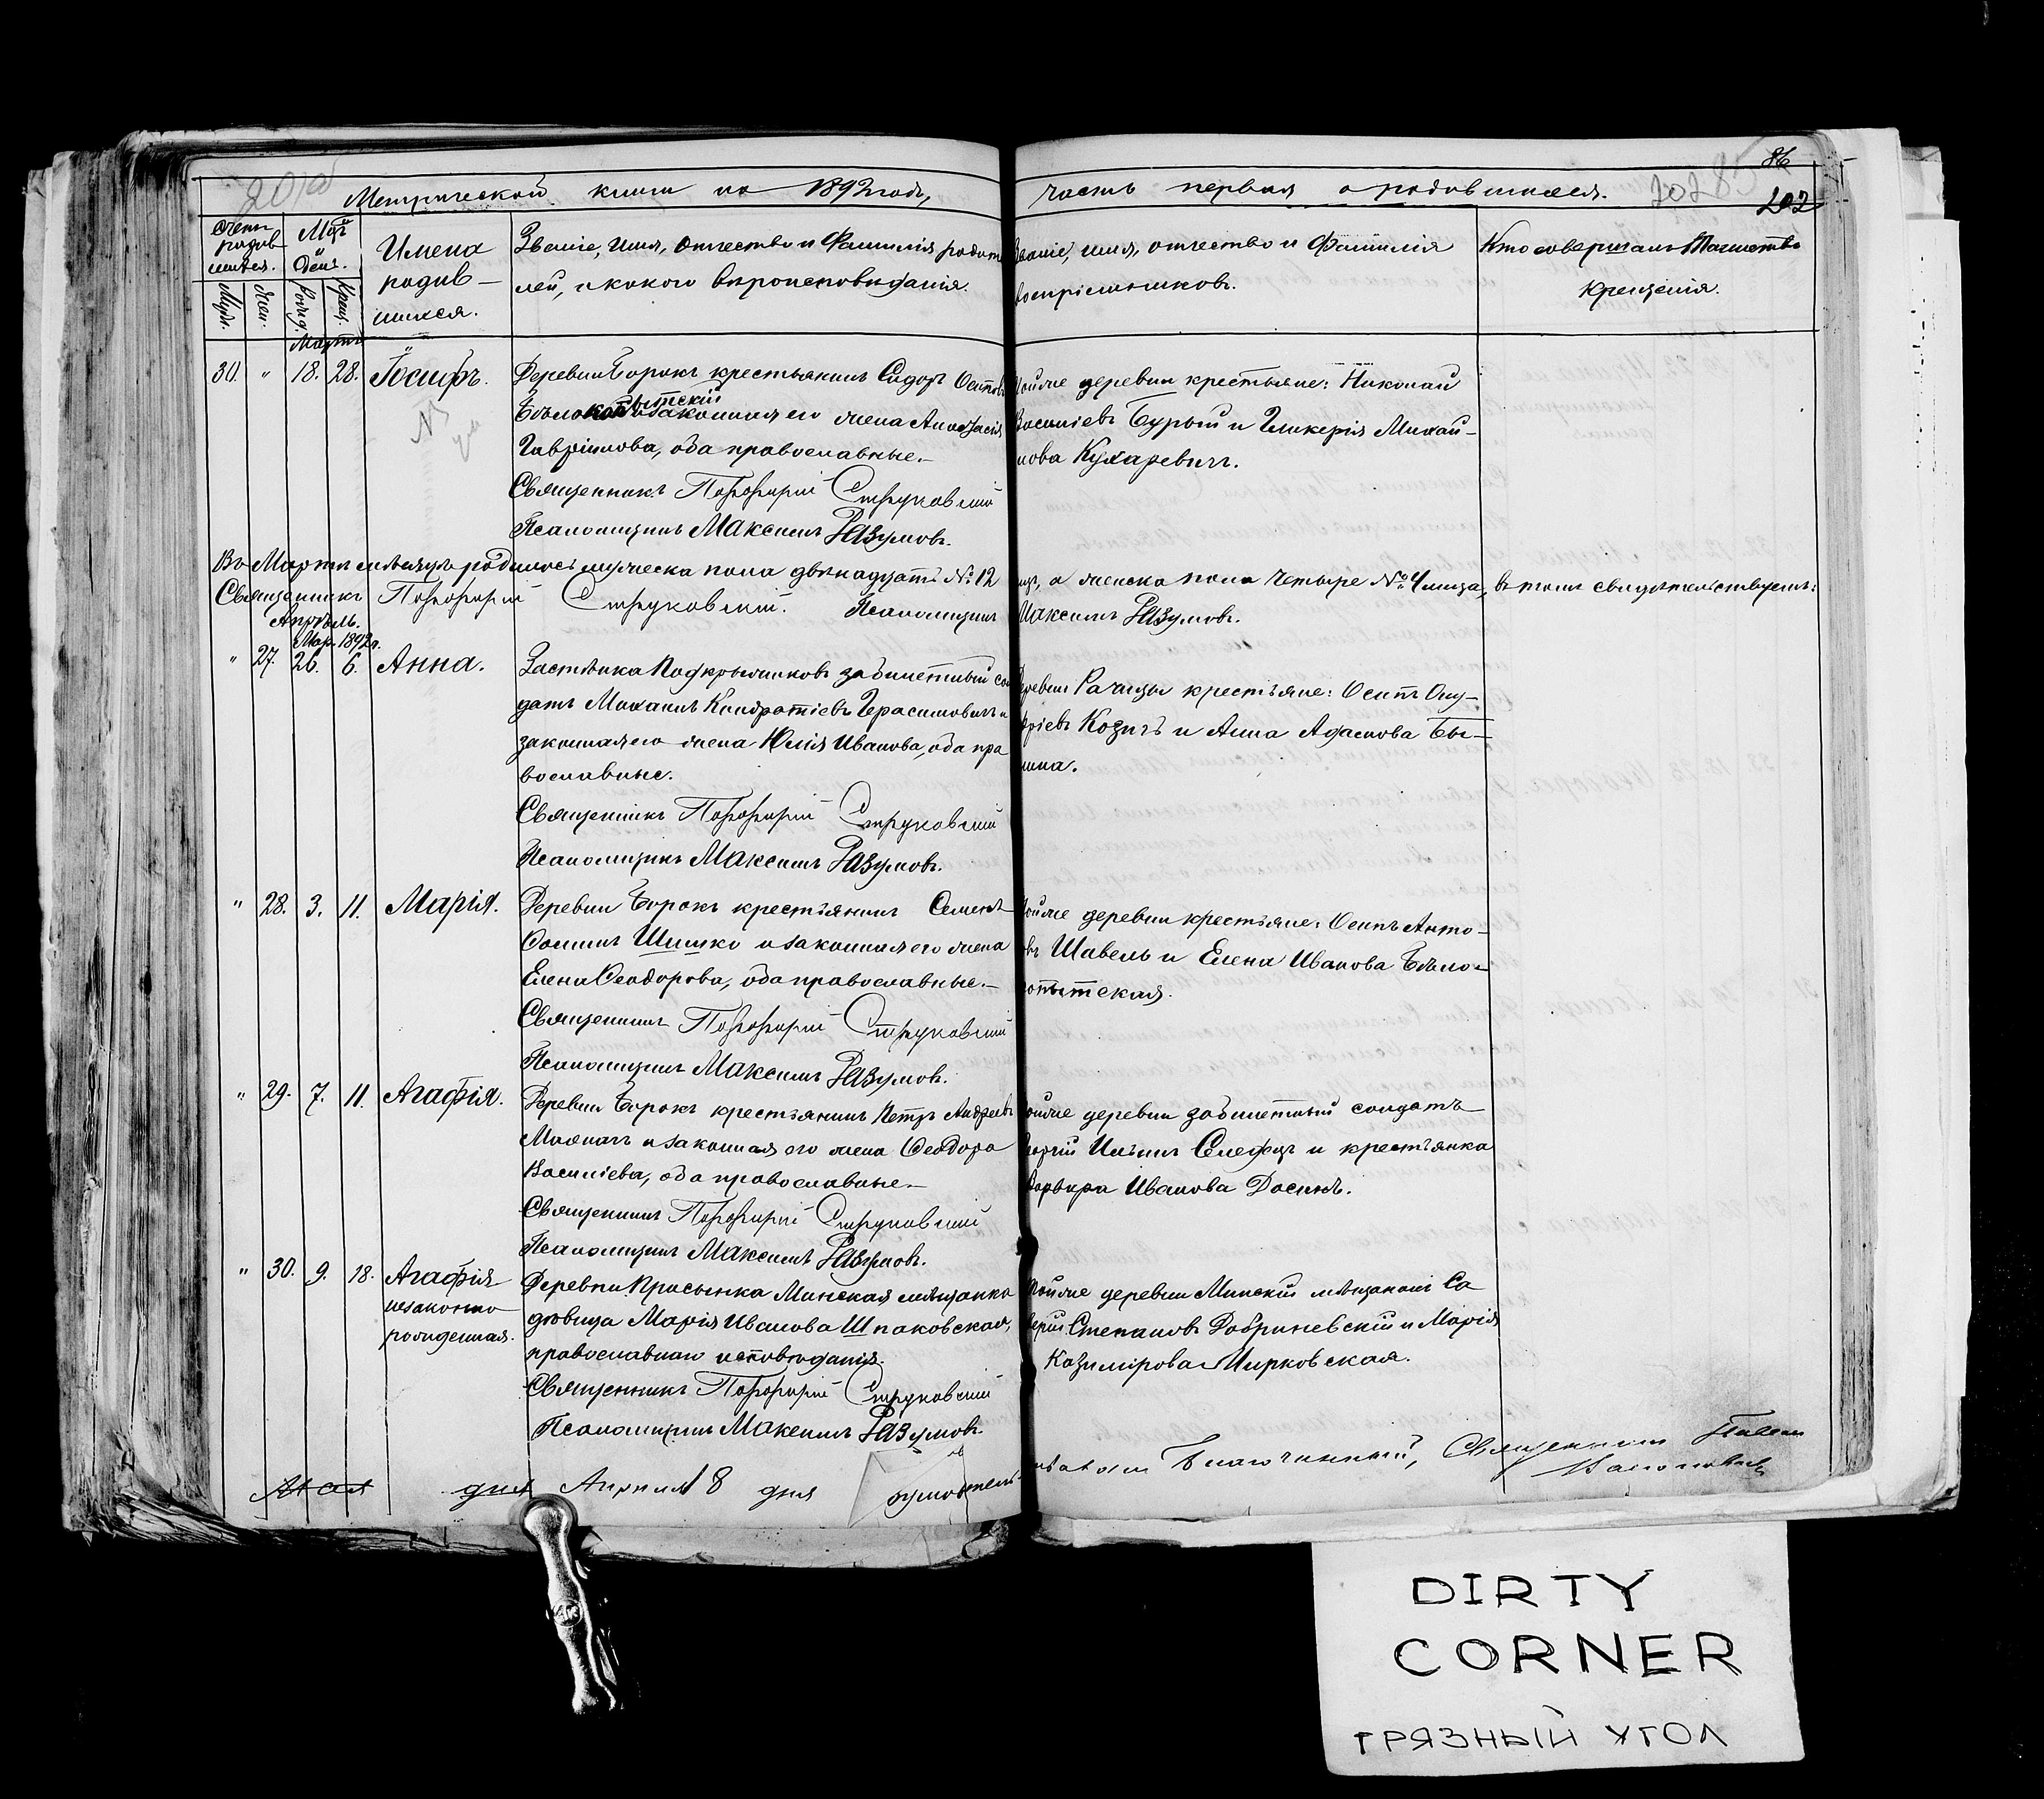 86
202
Метрической книги на 1892 годъ, часть первая о родившихся.
Счетъ родив-
шихся.
Муж.
Жен.
Мѣц. и День.
Рожд.
Крещ.
Имена
родив-
шихся.
Званіе, имя, отчество и Фамилія родите
лей, и какого вѣроисповѣданія.
Званіе, имя, отчество и Фамилія
воспріемниковъ.
Кто совершалъ Таинство
Крещенія.
Мартъ
30. " 18. 28. Іосифъ.
Деревни Борокъ крестьянинъ Сидоръ Осиповъ
Бѣлокопытскій и законная его жена Анастасія
Гавріилова, оба православные.—
Священникъ Порфирій Струковскій
Псаломщикъ Максимъ Разумовъ.
Тойже деревни крестьяне: Николай
Василіевъ Бурый и Гликерія Михай-
лова Кухаревичъ.
Въ Мартѣ мѣсяцѣ родилось мужеска пола двѣнадцать № 12 лицъ, а женска пола четыре № 4 лица, въ томъ свидѣтельствуемъ:
Священникъ Порфирій Струковскій. Псаломщикъ Максимъ Разумовъ.
Апрѣль.
Мар. 1892 г.
" 27. 26. 6. Анна.
Застѣнка Подкрыжиковъ забилетный сол
датъ Михаилъ Кондратіевъ Герасимовичъ и
законная его жена Юлія Иванова, оба пра
вославные.
Священникъ Порфирій Струковскій
Псаломщикъ Максимъ Разумовъ.
Деревни Рачицы крестьяне: Осипъ Ону-
фріевъ Козичъ и Анна Адамова
" 28. 3. 11. Марія.
Деревни Борокъ крестьянинъ Семенъ
Ѳоминъ Шишко и законная его жена
Елена Ѳеодорова, оба православные.—
Священникъ Порфирій Струковскій
Псаломщикъ Максимъ Разумовъ.
Тойже деревни крестьяне: Осипъ Анто-
овъ Шавель и Елена Иванова Бѣло-
копытская.
" 29. 7. 11. Агафія.
Деревни Борокъ крестьянинъ Петръ Андреевъ
и законная его жена Ѳеодора
Василіева, оба православные.—
Священникъ Порфирій Струковскій
Псаломщикъ Максимъ Разумовъ.
Тойже деревни забилетный солдатъ
Георгій Ильинъ и крестьянка
Варвара Иванова
" 30. 9. 18. Агафія
незаконно
рожденная.
Деревни Просынка Минская мѣщанка
дѣвица Марія Иванова Шпаковская,
православнаго исповѣданія.
Священникъ Порфирій Струковскій
Псаломщикъ Максимъ Разумовъ.
Тойже деревни Минскій мѣщанинъ
Степановъ Добриневскій и Марія
Казимірова Мирковская.
Мая дня Апрѣля 8 дня
Благочинный, Священникъ Павелъ
DIRTY
CORNER
ГРЯЗНЫЙ УГОЛ